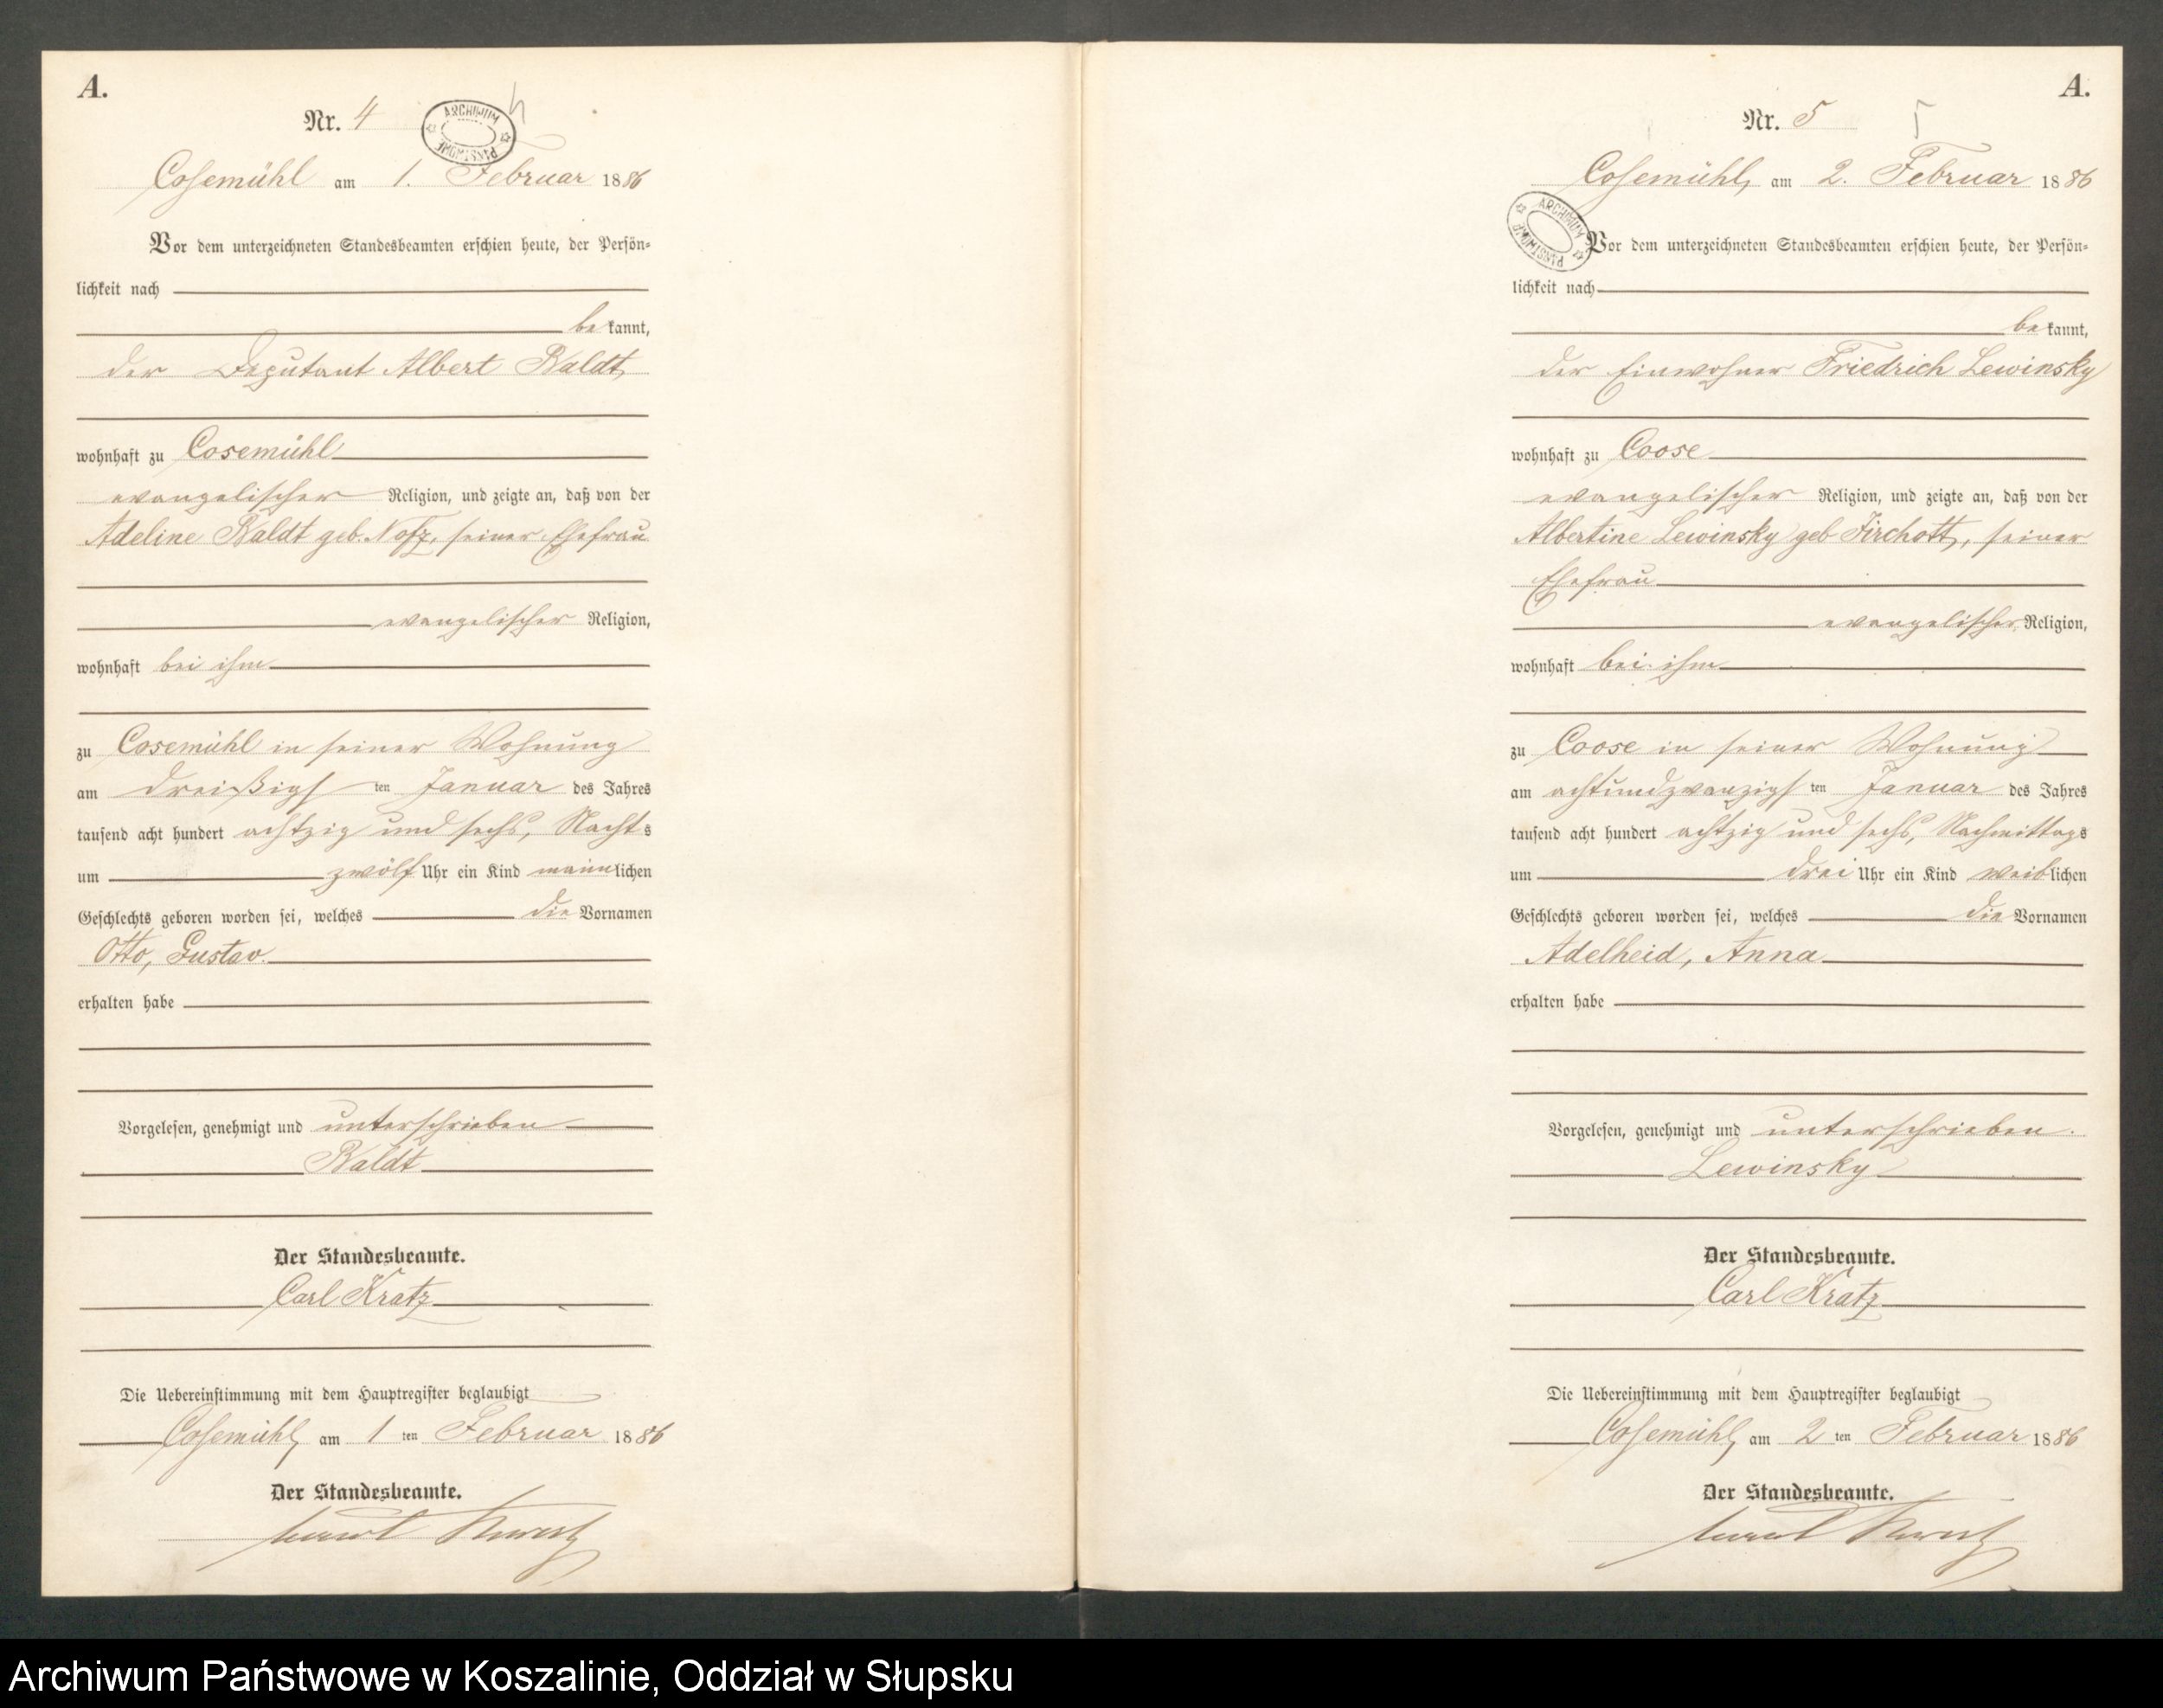 A.
Nr. 4
ARCHIWUM PAŃSTWOWE
Cosemühl am 1. Februar 1886
Vor dem unterzeichneten Standesbeamten erschien heute, der Persön-
lichkeit nach
bekannt,
der Deputant Albert Baldt,
wohnhaft zu Cosemühl
evangelischer Religion, und zeigte an, daß von der
Adeline Baldt geb. seiner Ehefrau
evangelischer Religion,
wohnhaft bei ihm
zu Cosemühl in seiner Wohnung
am dreißigsten Januar des Jahres
tausend acht hundert achtzig und sechs, Nachts
um zwölf Uhr ein Kind männlichen
Geschlechts geboren worden sei, welches die Vornamen
Otto, Gustav.
erhalten habe
Vorgelesen, genehmigt und unterschrieben
Baldt
Der Standesbeamte.
Carl Kratz
Die Uebereinstimmung mit dem Hauptregister beglaubigt
Cosemühl, am 1ten Februar 1886
Der Standesbeamte.
A.
Nr. 5
5
Cosemühl, am 2. Februar 1886
ARCHIWUM PAŃSTWOWE
Vor dem unterzeichneten Standesbeamten erschien heute, der Persön-
lichkeit nach
bekannt,
der Einwohner Friedrich Lewinsky
wohnhaft zu Coose
evangelischer Religion, und zeigte an, daß von der
Albertine Lewinsky geb Jirchott, seiner
Ehefrau
evangelischer Religion,
wohnhaft bei ihm
zu Coose in seiner Wohnung
am achtundzwanzigsten Januar des Jahres
tausend acht hundert achtzig und sechs, Nachmittags
um drei Uhr ein Kind weiblichen
Geschlechts geboren worden sei, welches die Vornamen
Adelheid, Anna
erhalten habe
Vorgelesen, genehmigt und unterschrieben.
Lewinsky
Der Standesbeamte.
Carl Kratz
Die Uebereinstimmung mit dem Hauptregister beglaubigt
Cosemühl, am 2ten Februar 1886
Der Standesbeamte.
Archiwum Państwowe w Koszalinie, Oddział w Słupsku